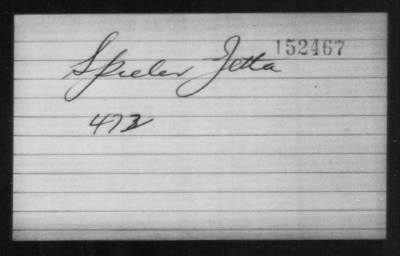 Spieler Jetta 152467
473